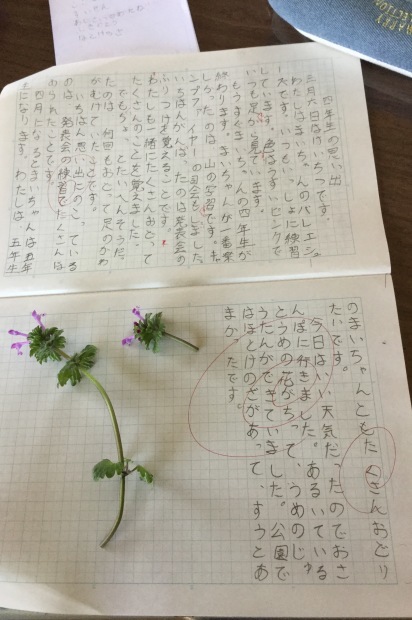 四年生の思い出
三月六日はけいちつです。
わたしはまいちゃんのバレエシュー
ズです。いつもいっしょに練習
しています。色はうすいピンクで
いつも足から見てます。
もうすぐまいちゃんの四年生が
終わります。まいちゃんが一番楽
しかったのは、山の学習です。キャ
ンプファイヤーの司会もしました。
いちばんがんばったのは発表会の
ふりつけを覚えることです。
わたしも一緒にたくさんおどって
たくさんのことを覚えました。
でもちょっとたいへんそうだっ
たのは、何回もおどって足のかわ
がむけていたことです。
いちばん思い出にのこっている
のは、発表会の練習でたくさんほ
められたことです。
四月になるとまいちゃんは五年
生になります。わたしは、五年生
のまいちゃんともたくさんおどり
たいです。
今日はいい天気だったのでおさ
んぽに行きました。あるいている
とうめの花がちって、うめのじゅ
うたんができていました。公園で
はほとけのざがあって、すうとあ
まかったです。
HAPPY